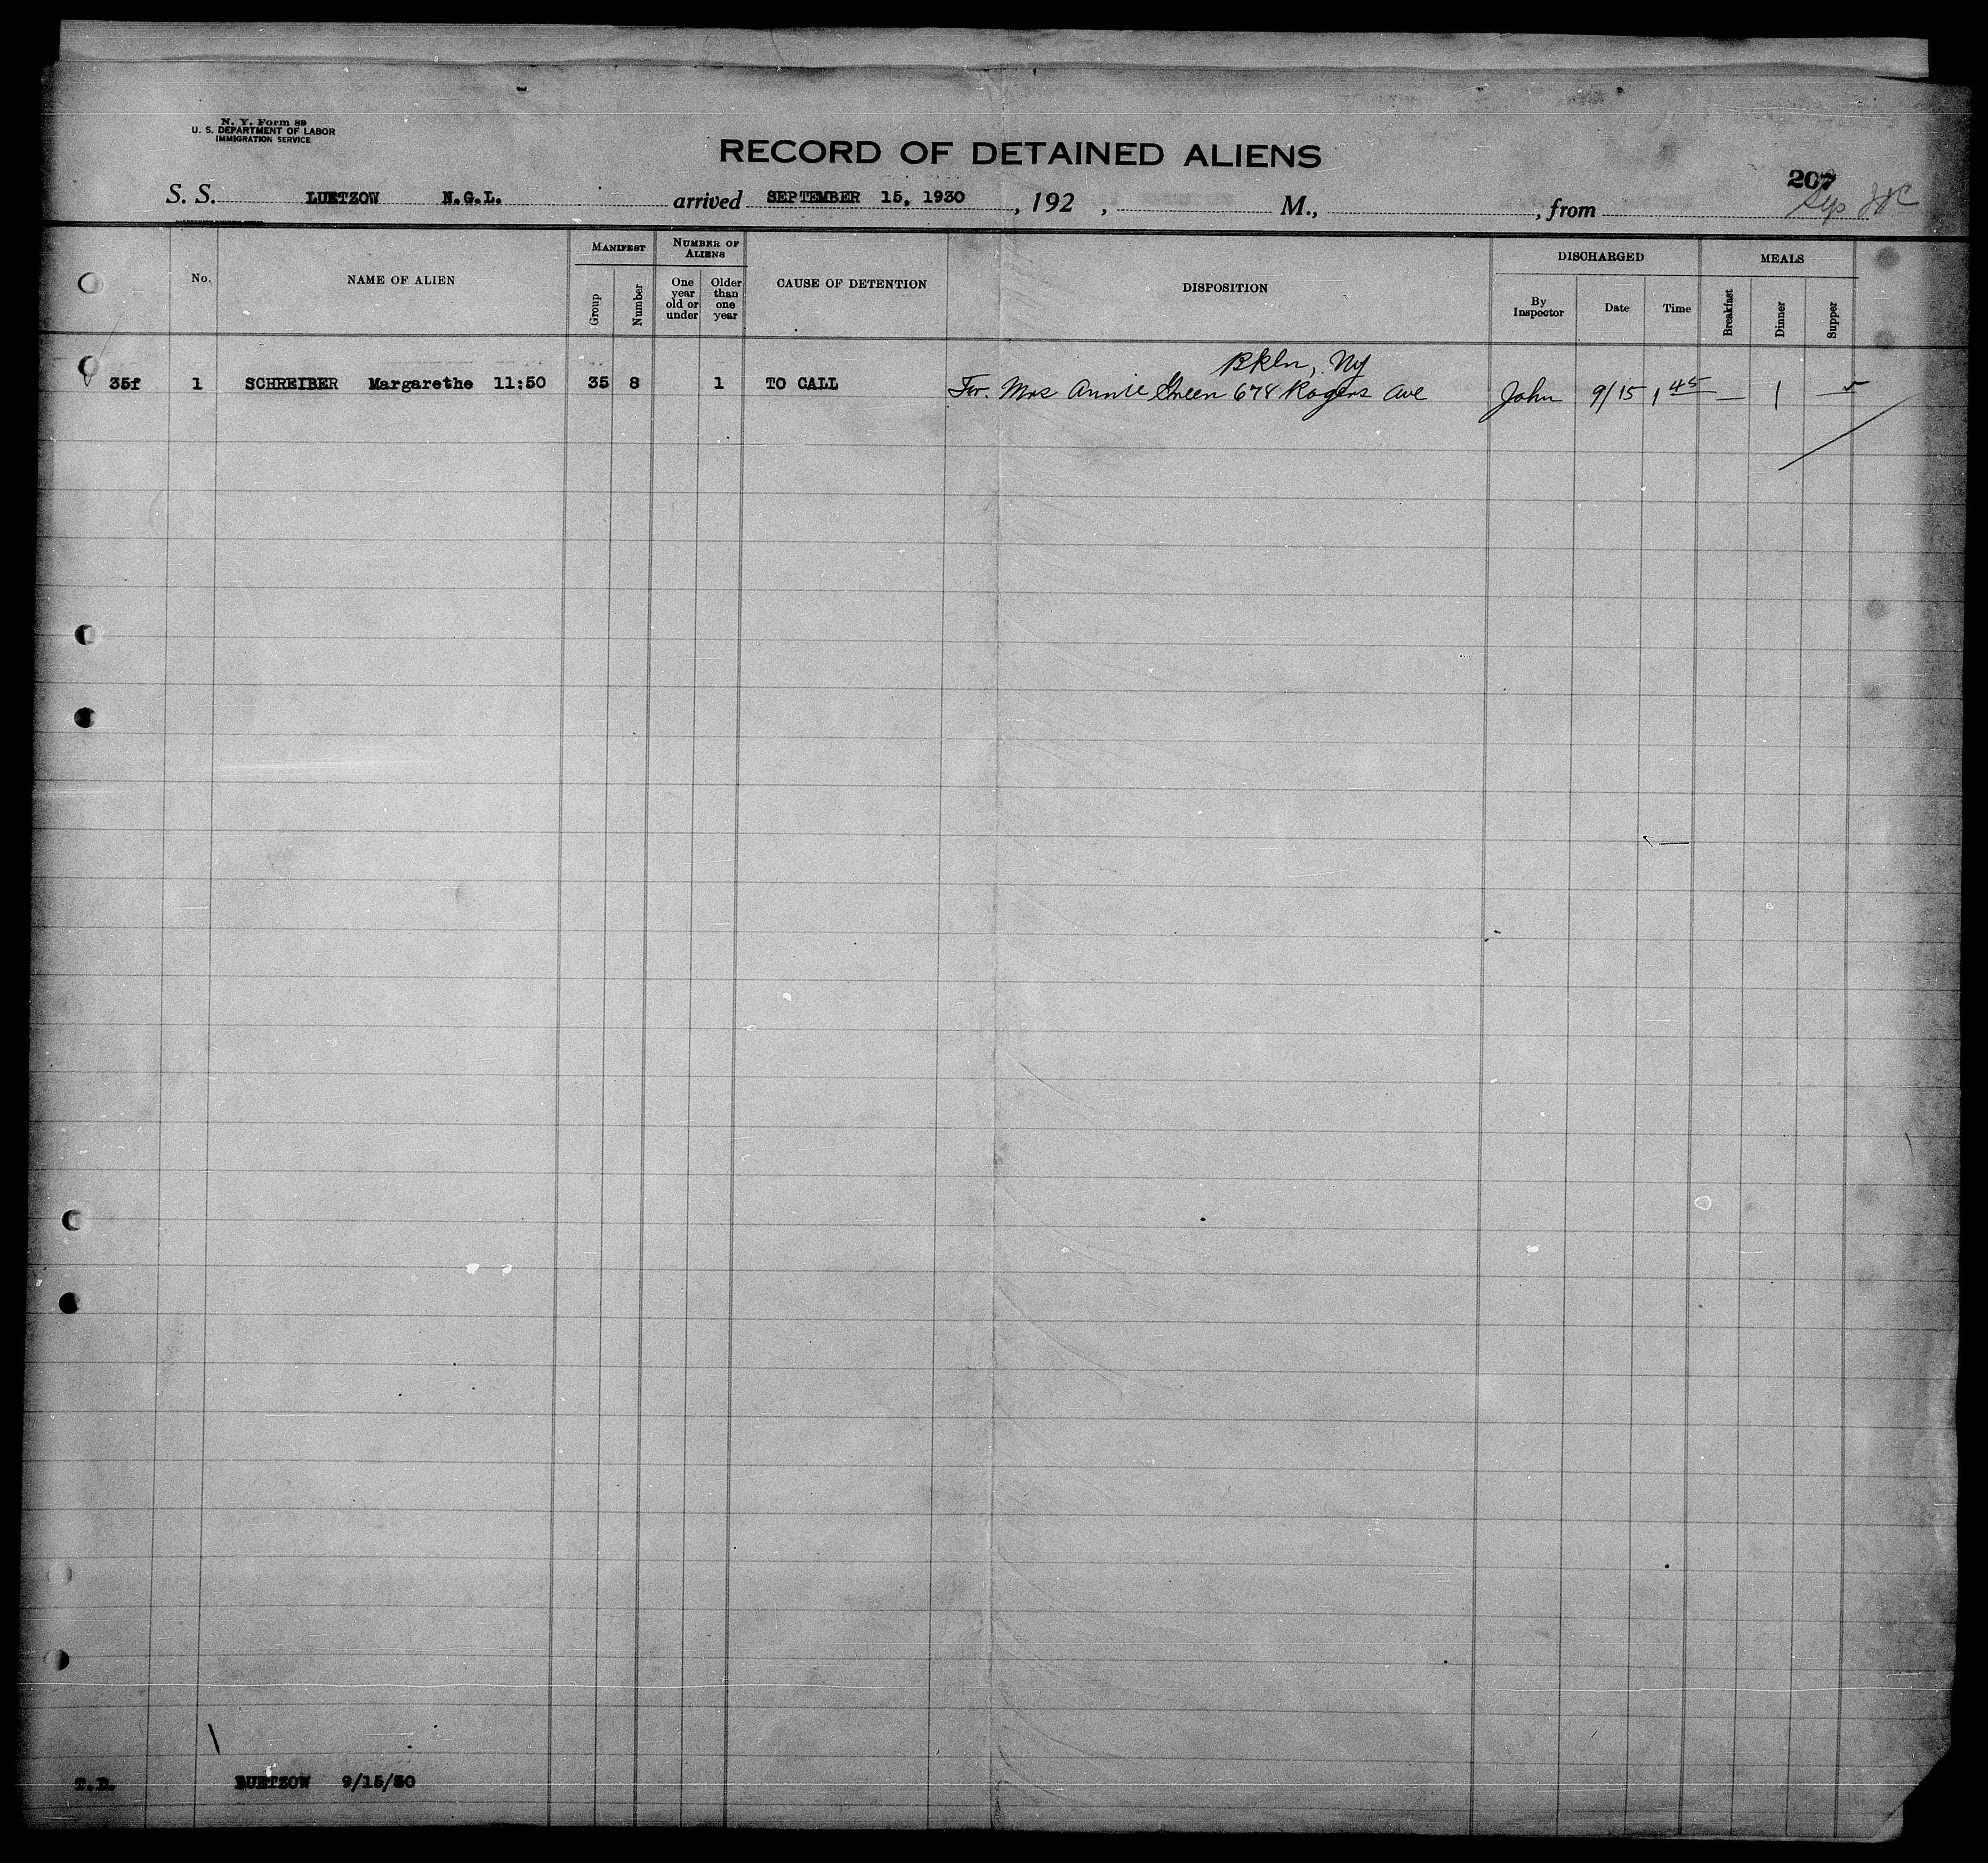 N. Y. Form 89
U. S. DEPARTMENT OF LABOR
IMMIGRATION SERVICE
RECORD OF DETAINED ALIENS
207
S. S. LUETZOW N.G.L. arrived SEPTEMBER 15, 1930, 192 , M., , from
No. NAME OF ALIEN MANIFEST NUMBER OF ALIENS CAUSE OF DETENTION DISPOSITION DISCHARGED MEALS
Group Number One year old or under Older than one year By Inspector Date Time Breakfast Dinner Supper
Bkln, NY
35f 1 SCHREIBER Margarethe 11:50 35 8 1 TO CALL Mrs Annie Green 678 Rogers Ave John 9/15 1 45 — 1
T.D. LUETZOW 9/15/30